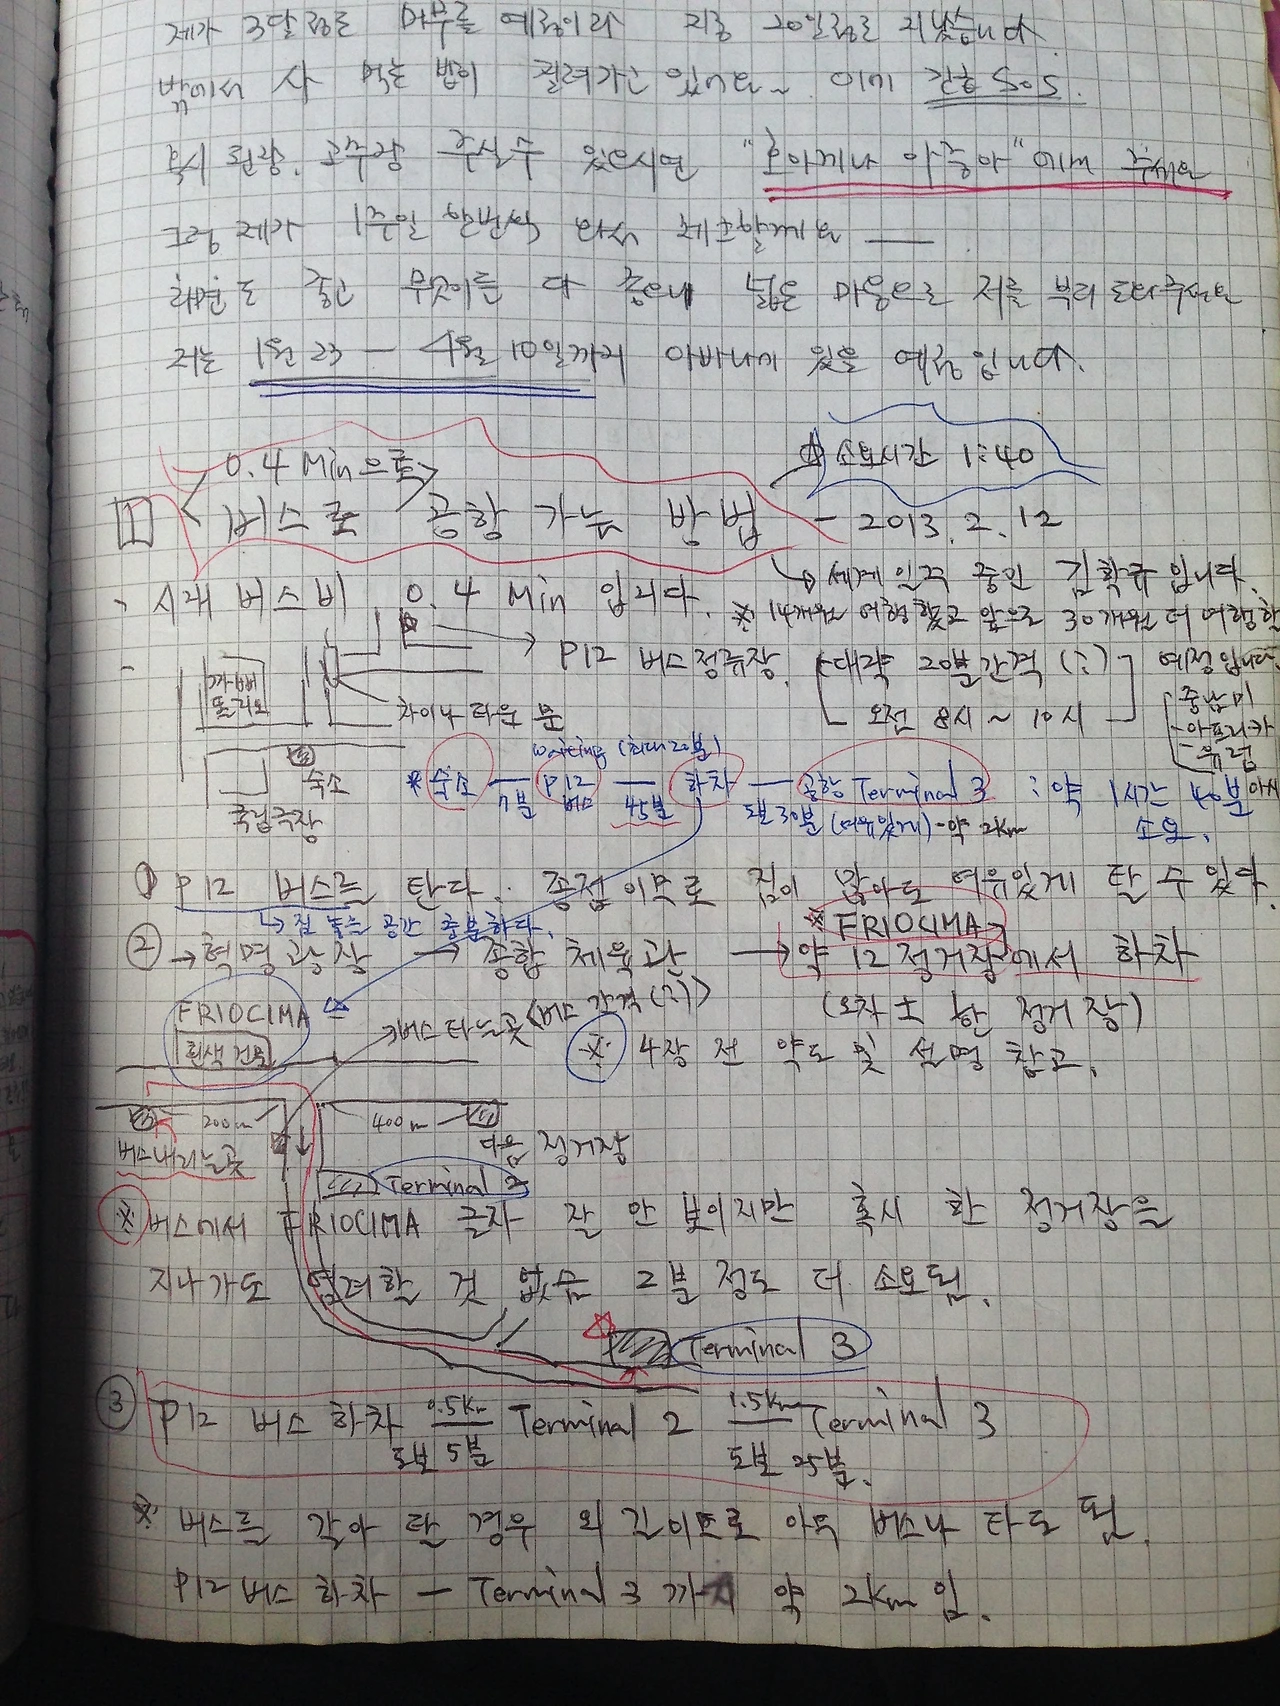 제가 3달정도 머무를 예정이라 지금 20일정도 지났습니다.
밖에서 사 먹는 밥이 질려가고 있네요~ 이미
혹시 된장, 고추장 주실수 있으시면 "호아끼나 아줌아"에게 주세요
그럼 제가 1주일 한번씩 와서 체크할께요
라면도 좋고 무엇이든 다 좋으니 넓은 마음으로 저를 부디 도와주세요
저는 1월 23 — 4월 10일까지 아바나에 있을 예정입니다.
0.4 Min으로
소요시간 1:40
1 버스로 공항 가는 방법 - 2013. 2. 12
→ 세계일주 중인 김학규입니다.
- 시내 버스비 0.4 Min 입니다.
※ 14개월 여행했고 앞으로 30개월 더 여행할
예정입니다.
→ P12 버스정류장. (대략 20분간격(?)
오전 8시 ~ 10시
중남미
-아프리카
-유럽
까삐똘리오
차이나 타운 문
숙소
국립극장
waiting (최대20분)
* 숙소 — P12 버스 — 하차 — 공항 Terminal 3 : 약 1시간 40분
7분 45분 도보 30분 (여유있게) - 약 2km 소요.
① P12 버스를 탄다. 종점이므로 짐이 많아도 여유있게 탈 수 있다.
↳ 짐 놓는 공간 충분하다.
※ FRIOCIMA
② → 혁명광장 → 종합 체육관 → 약 12정거장에서 하차
(오차 ± 한 정거장)
FRIOCIMA
흰색 건물
버스타는곳 <버스 간격(?)>
※ 4장 전 약도 및 설명 참고.
200m
400m
버스내리는곳
다음 정거장
Terminal 2
※ 버스에서 FRIOCIMA 글자 잘 안 보이지만 혹시 한 정거장을
지나가도 염려할 것 없음 2분 정도 더 소요됨.
Terminal 3
③ P12 버스 하차 0.5Km Terminal 2 1.5Km Terminal 3
도보 5분 도보 25분.
※ 버스를 갈아 탈 경우 외길이므로 아무 버스나 타도 됨.
P12 버스 하차 — Terminal 3 까지 약 2Km 임.